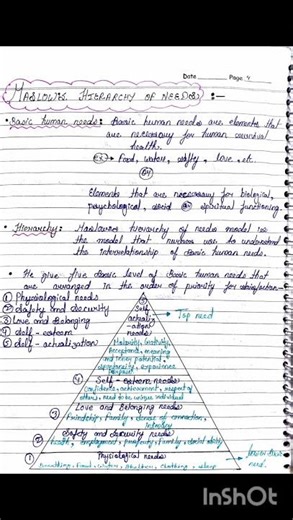 Date Page 4
MASLOW'S HIERARCHY OF NEEDS :-
• Basic human needs : Basic human needs are elements that
are necessary for human survival
health.
Ex → Food, water, safety, love, etc.
Or
Elements that are necessary for biological,
psychological, social or spiritual functioning.
• Hierarchy : hierarchy of needs model is
the model that nurses use to understand
the interrelationship of basic human needs.
• He give five basic level of basic human needs that
are arranged in the order of priority for satisfaction-
① Physiological needs
② Safety and security
③ Love and Belonging
④ Self-esteem
⑤ Self-actualization
⑤
Self
needs
Top need
Morality, creativity,
Acceptance, meaning
and inner potential,
experience
purpose
④ Self-esteem needs
confidence, achievement, respect of
others, need to be unique individual
③ Love and Belonging needs
Friendship, family, sense of connection,
② Safety and Security needs
Health, employment, property, family
① Physiological needs
Breathing, food, water, clothing, sleep
need.
InShOt